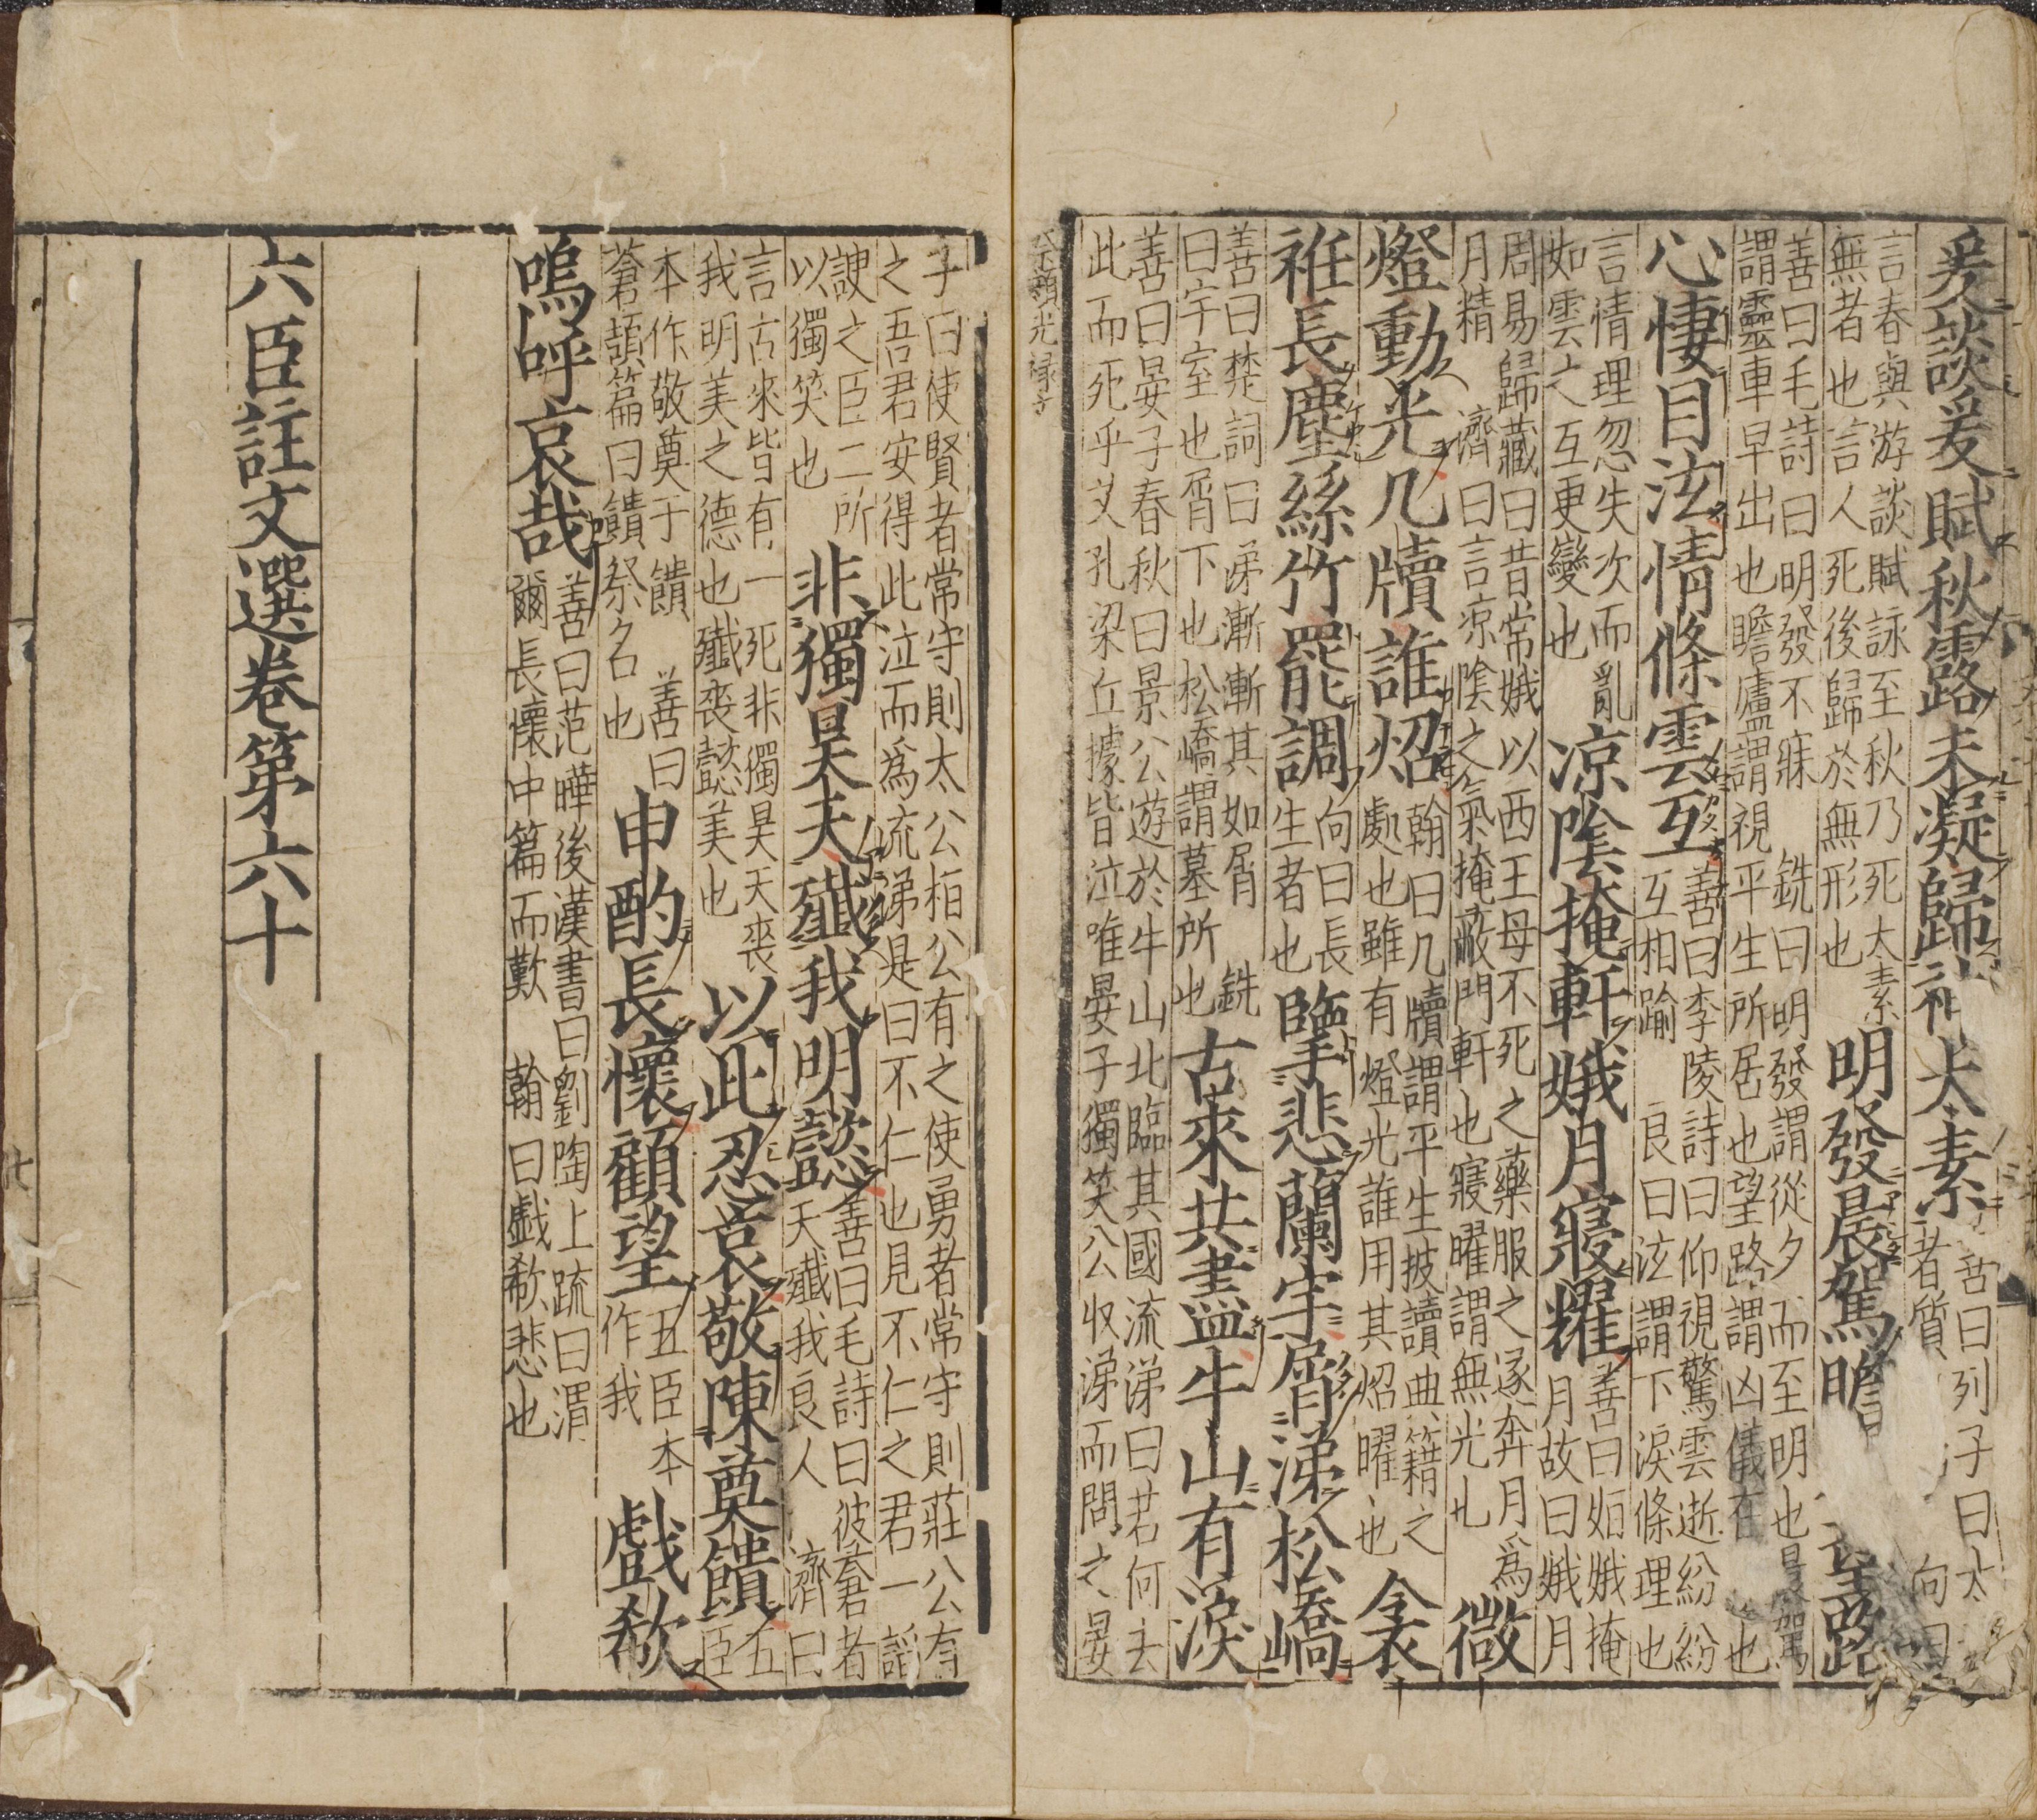 爰談爰賦秋露未凝歸神太素
善曰列子曰太
者質
向曰
言春與游談賦詠至秋乃死太素
無者也言人死後歸於無形也
明發晨駕瞻望路
善曰毛詩曰明發不寐 銑曰明發謂從夕而至明也晨駕
謂靈車早出也瞻廬謂視平生所居也望路謂凶儀在
也
心悽目泫情條雲互
善曰李陵詩曰仰視驚雲逝紛紛
互相踰 良曰泫謂下淚條理也
言情理忽失次而亂
如雲之互更變也
凉陰掩軒娥月寢耀
善曰姮娥掩
月故曰娥月
周易歸藏曰昔常娥以西王母不死之藥服之遂奔月爲
月精 濟曰言凉陰之氣掩蔽門軒也寢曜謂無光也
微
燈動光几牘誰炤
翰曰几牘謂平生披讀典籍之
處也雖有燈光誰用其炤曜也
衾
袵長塵絲竹罷調
向曰長
生者也
擥悲蘭宇屑涕松嶠
善曰楚詞曰涕漸漸其如屑 銑
曰宇室也屑下也松嶠謂墓所也
古來共盡牛山有淚
善曰晏子春秋曰景公遊於牛山北臨其國流涕曰若何去
此而死乎艾孔梁丘據皆泣唯晏子獨笑公収涕而問之晏
子曰使賢者常守則太公栢公有之使勇者常守則莊公有
之吾君安得此泣而爲流涕是曰不仁也見不仁之君一謟
諛之臣二所
以獨笑也
非獨昊天殲我明懿
善曰毛詩曰彼蒼者
天殲我良人 濟曰
言古來皆有一死非獨昊天喪
我明美之德也殲喪懿美也
以此忍哀敬陳奠饋
五
臣
本作敬奠于饋 善曰
蒼頡篇曰饋祭名也
申酌長懷顧望
五臣本
作我
戲欷
嗚呼哀哉
善曰范曄後漢書曰劉陶上疏曰渭
爾長懷中篇而歎 翰曰戲欷悲也
六臣註文選卷第六十